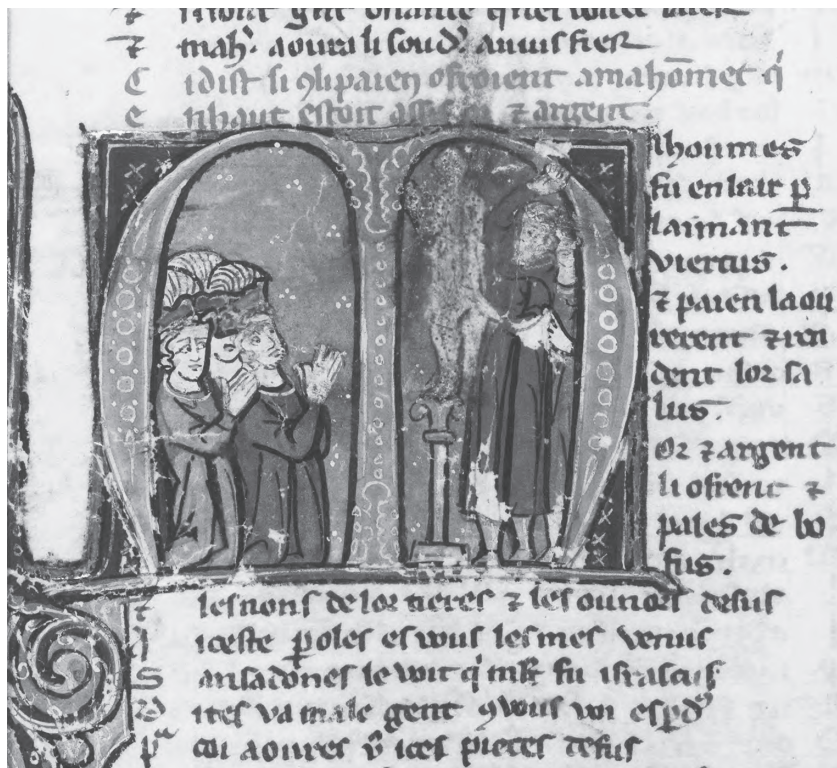 ⁊ mahꝰ. aoura li soudꝰ.
C i dist si ꝯ li paien ofroient a mahōmet q̄
e n haut estoit ⁊ argent.
M ahoumes
fu en lair ꝑ
laimant
viertus.
⁊ paien laou
rerent ⁊ ren
dent lor sa
lus.
Or ⁊ argent
li ofrent ⁊
pales de bo
fus.
les nons de lor tieres ⁊ les ounors desus
A iceste ꝑoles es wus les mes venus
S ansadones le voit q̄ fu israscus
D ites va male gent ꝯ vous voi espdꝰ
P coi aoures vꝰ ices pieces desus